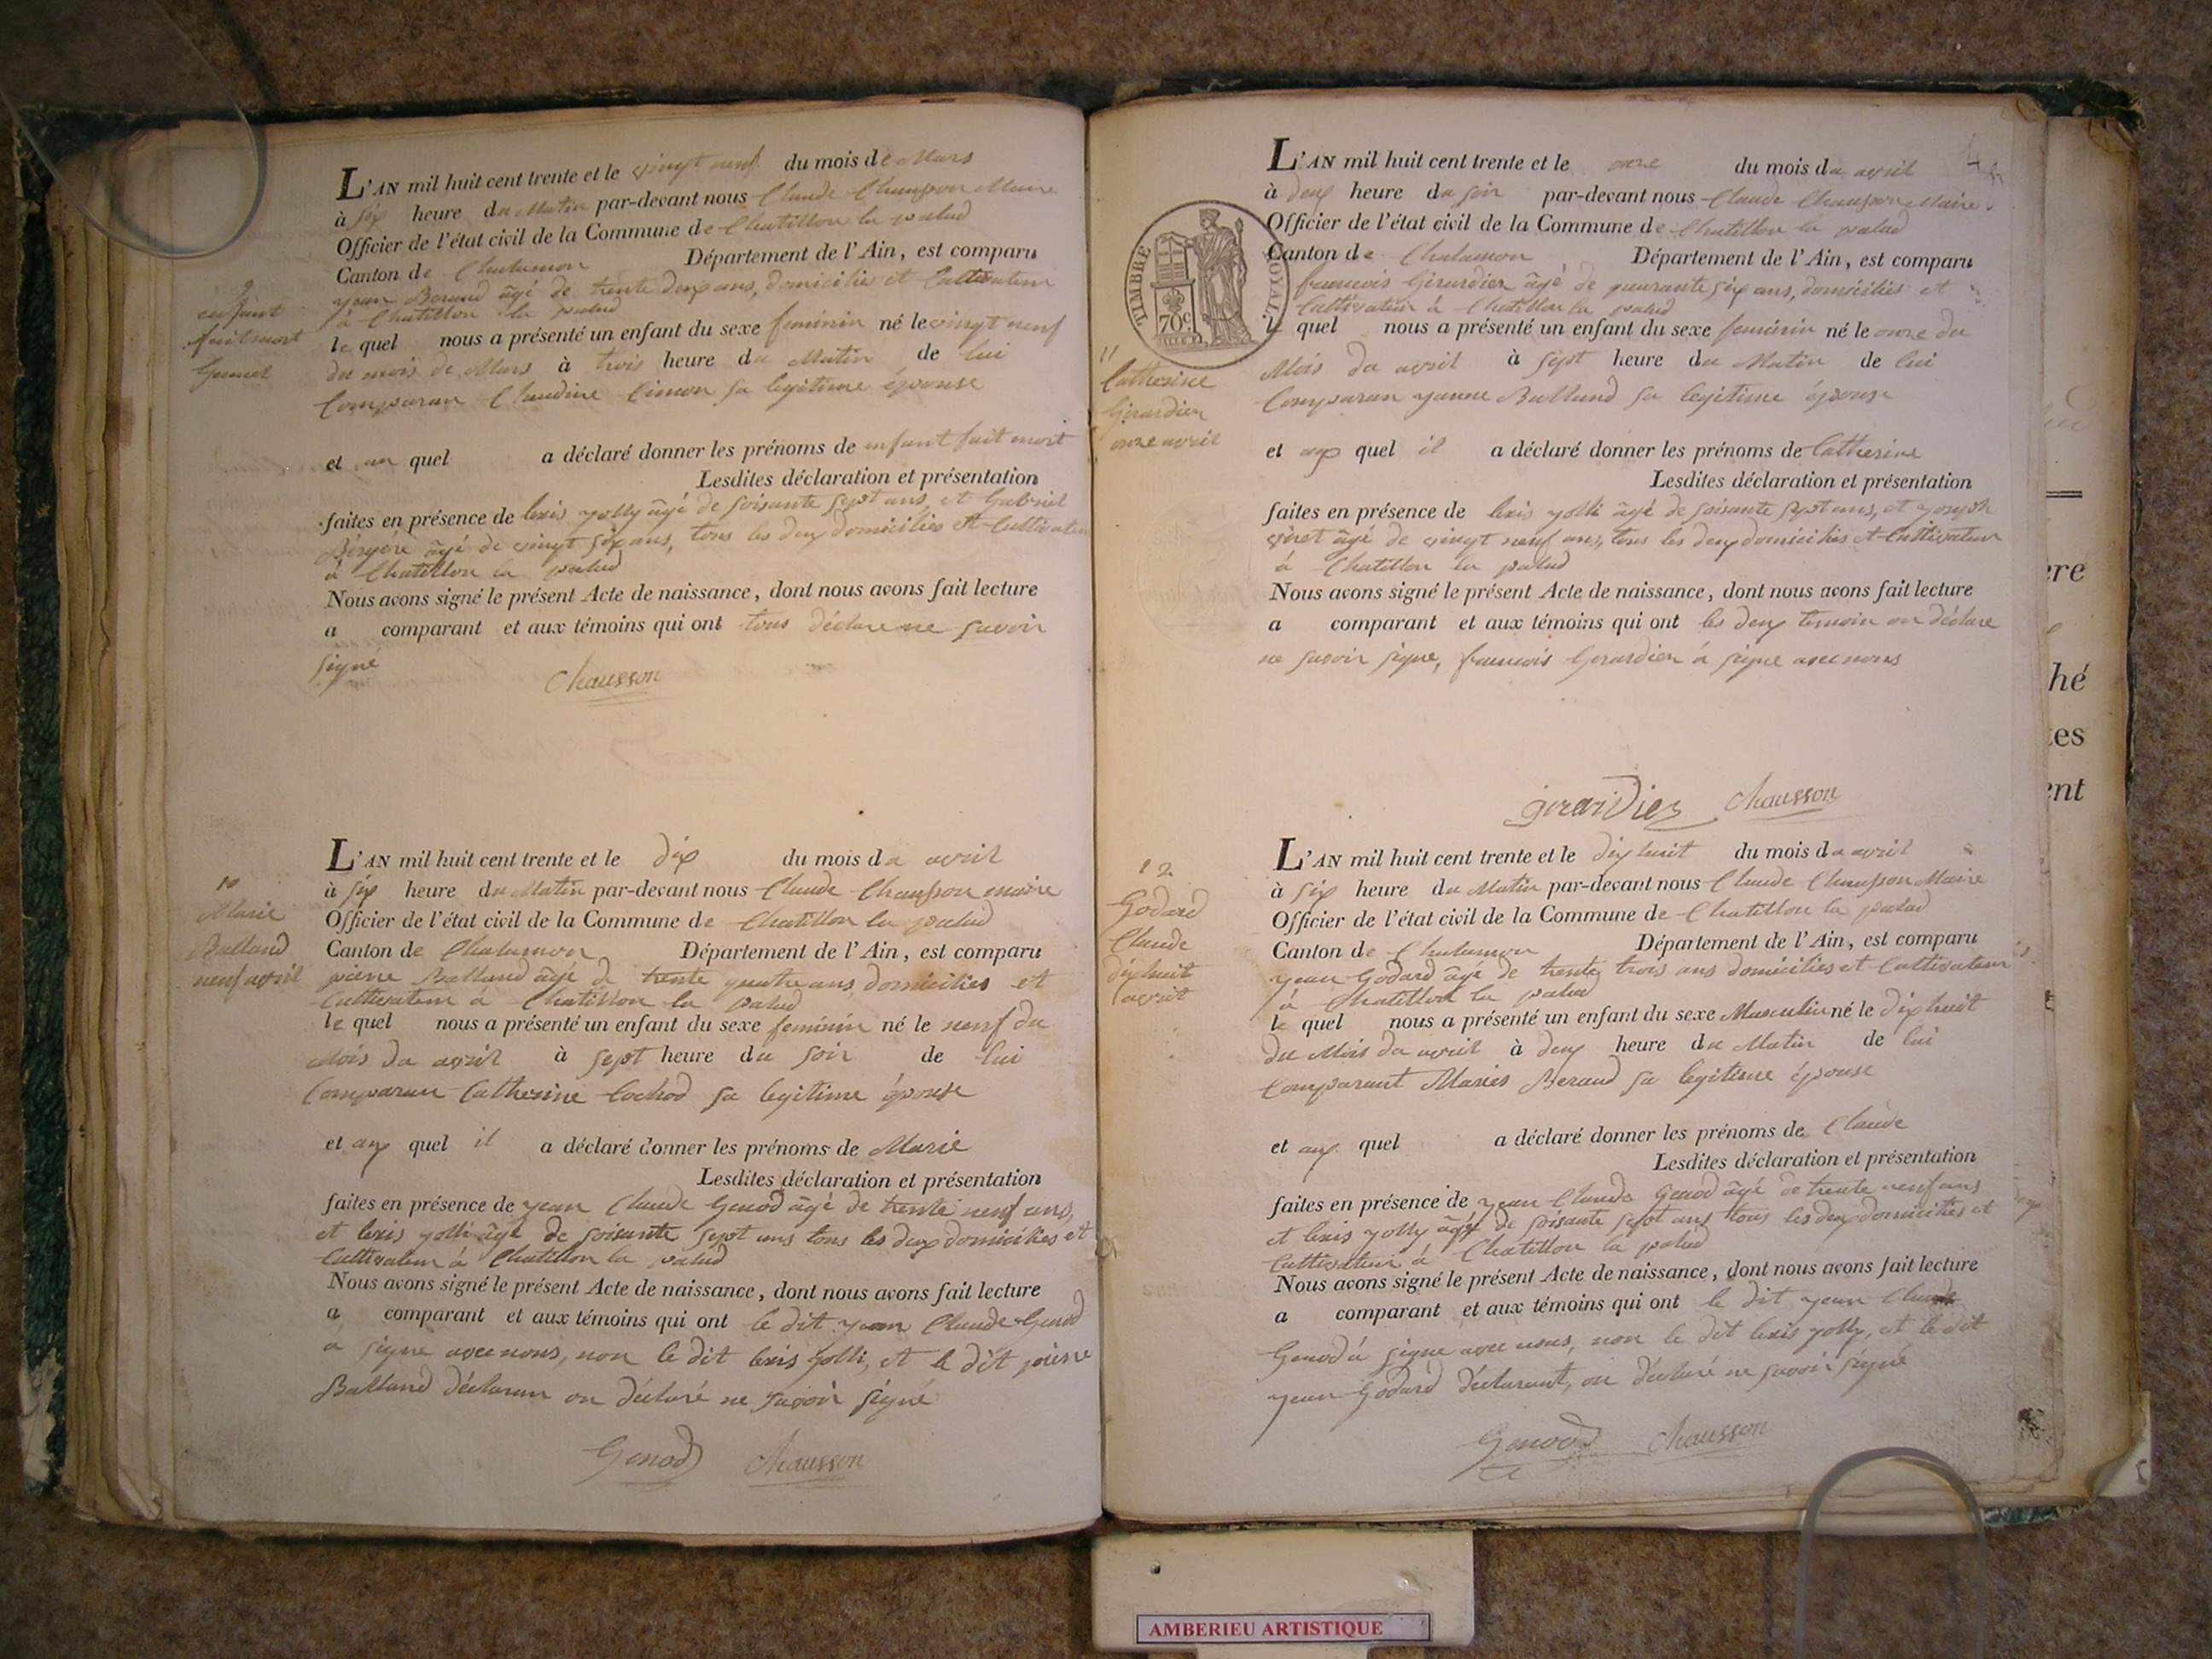 9
enfant
fait mort
L'AN mil huit cent trente et le vingt neuf du mois de Mars
à six heure du Matin par-devant nous Claude Chausson Maire
Officier de l'état civil de la Commune de Chatillon la palud
Canton de Chalamon Département de l'Ain, est comparu
yean Beraud âgé de trente deux ans, domicilies et Cultivateur
à Chatillon la palud
le quel nous a présenté un enfant du sexe feminin né le vingt neuf
du mois de Mars à trois heure du Matin de lui
Comparan Claudine Simon sa legitime épouse
et au quel a déclaré donner les prénoms de enfant fait mort
Lesdites déclaration et présentation
faites en présence de lexis yolly âgé de soisante sept ans, et Gabriel
âgé de vingt six ans, tous les deux domicilies et Cultivateur
à Chatillon la palud
Nous avons signé le présent Acte de naissance, dont nous avons fait lecture
a comparant et aux témoins qui ont tous déclare ne savoir
signé
Chausson
10
Marie
Balland
neuf avril
L'AN mil huit cent trente et le dix du mois da avril
à six heure du Matin par-devant nous Claude Chausson maire
Officier de l'état civil de la Commune de Chatillon la palud
Canton de Chalamon Département de l'Ain, est comparu
pierre Balland âgé de trente quatre ans domicilies et
Cultivateur a Chatillon la palud
le quel nous a présenté un enfant du sexe feminin né le neuf du
Mois da avril à sept heure du soir de lui
Comparan Catherine Cochod sa legitime épouse
et aux quel il a déclaré donner les prénoms de Marie
Lesdites déclaration et présentation
faites en présence de yean Claude Genod âgé de trente neuf ans,
et lexis yolli âgé de soisante sept ans tous les deux domicilies et
Cultivateur à Chatillon la palud
Nous avons signé le présent Acte de naissance, dont nous avons fait lecture
a comparant et aux témoins qui ont le dit yean Claude Genod
à signe avec nous, non le dit lexis yolli, et le dit pierre
Balland déclaran on déclaré ne savoir signé
Genod Chausson
TIMBRE ROYAL
70c
11
Catherine
Girardier
onze avril
L'AN mil huit cent trente et le onze du mois da avril
à deux heure du soir par-devant nous Claude Chausson Maire
Officier de l'état civil de la Commune de Chatillon la palud
Canton de Chalamon Département de l'Ain, est comparu
francois Girardier âgé de quarante six ans, domicilies et
Cultivateur à Chatillon la palud
le quel nous a présenté un enfant du sexe feminin né le onze du
Mois da avril à sept heure du Matin de lui
Comparan yanne Balland sa legitime épouse
et aux quel il a déclaré donner les prénoms de Catherine
Lesdites déclaration et présentation
faites en présence de lexis yolli âgé de soisante sept ans, et yoseph
âgé de vingt neuf ans, tous les deux domicilies et Cultivateur
à Chatillon la palud
Nous avons signé le présent Acte de naissance, dont nous avons fait lecture
a comparant et aux témoins qui ont les deux temoin on déclare
ne savoir signe, francois Girardier à signe avec nous
girardier Chausson
12
Godard
Claude
dix huit
avril
L'AN mil huit cent trente et le dix huit du mois da avril
à six heure du Matin par-devant nous Claude Chausson Maire
Officier de l'état civil de la Commune de Chatillon la palud
Canton de Chalamon Département de l'Ain, est comparu
yean Godard âgé de trente trois ans domicilies et Cultivateur
à Chatillon la palud
le quel nous a présenté un enfant du sexe Masculin né le dix huit
du Mois da avril à deux heure du Matin de lui
Comparant Maries Beraud sa legitime épouse
et aux quel a déclaré donner les prénoms de Claude
Lesdites déclaration et présentation
faites en présence de yean Claude Genod âgé de trente neuf ans
et lexis yolly âgé de soisante sept ans tous les deux domicilies et
Cultivateur à Chatillon la palud
Nous avons signé le présent Acte de naissance, dont nous avons fait lecture
a comparant et aux témoins qui ont le dit yean Claude
Genod à signe avec nous, non le dit lexis yolly, et le dit
yean Godard déclarant, on déclaré ne savoir signé
Genod Chausson
ère
hé
tes
ent
AMBERIEU ARTISTIQUE